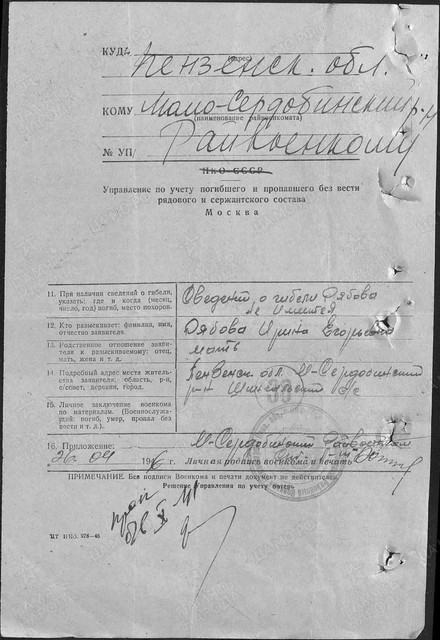 КУДА Пензенск. обл.
(адрес)
КОМУ Мало-Сердобинский р-н
(наименование райвоенкомата)
Райвоенкому
№ УП/
НКО СССР
Управление по учету погибшего и пропавшего без вести
рядового и сержантского состава
Москва
11. При наличии сведений о гибели, указать: где и когда (месяц, число, год) погиб, место похорон.
Сведений о гибели Рябова
не имеется
12. Кто разыскивает: фамилия, имя, отчество заявителя.
Рябова Ирина Егоровна
13. Родственное отношение заявителя к разыскиваемому: отец, мать, жена и т. д.
мать
14. Подробный адрес места жительства заявителя: область, р-н, с/совет, деревня, город.
Пензенск. обл. М-Сердобинский
р-н с/с
15. Личное заключение военкома по материалам. (Военнослужащий: погиб, умер, пропал без вести и т. д.).
16. Приложение:
М-Сердобинский Райвоенком
26. 04 1946 г. Личная подпись военкома и печать
ПРИМЕЧАНИЕ. Без подписи Военкома и печати документ не действителен.
Решение Управления по учету потерь